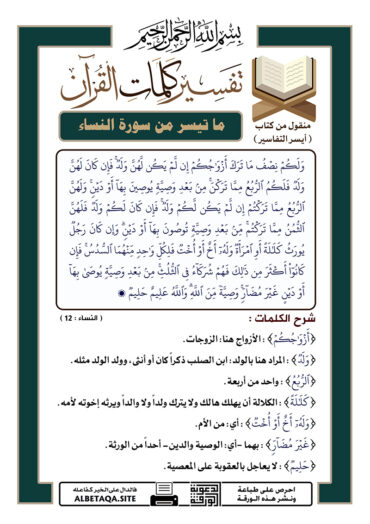 بسم الله الرحمن الرحيم
تفسير كلمات القرآن
ما تيسر من سورة النساء
منقول من كتاب
( أيسر التفاسير )
وَلَكُمْ نِصْفُ مَا تَرَكَ أَزْوَٰجُكُمْ إِن لَّمْ يَكُن لَّهُنَّ وَلَدٌ فَإِن كَانَ لَهُنَّ
وَلَدٌ فَلَكُمُ ٱلرُّبُعُ مِمَّا تَرَكْنَ مِنۢ بَعْدِ وَصِيَّةٍ يُوصِينَ بِهَآ أَوْ دَيْنٍ وَلَهُنَّ
ٱلرُّبُعُ مِمَّا تَرَكْتُمْ إِن لَّمْ يَكُن لَّكُمْ وَلَدٌ فَإِن كَانَ لَكُمْ وَلَدٌ فَلَهُنَّ
ٱلثُّمُنُ مِمَّا تَرَكْتُم مِّنۢ بَعْدِ وَصِيَّةٍ تُوصُونَ بِهَآ أَوْ دَيْنٍ وَإِن كَانَ رَجُلٌ
يُورَثُ كَلَٰلَةً أَوِ ٱمْرَأَةٌ وَلَهُۥٓ أَخٌ أَوْ أُخْتٌ فَلِكُلِّ وَٰحِدٍ مِّنْهُمَا ٱلسُّدُسُ فَإِن
كَانُوٓا۟ أَكْثَرَ مِن ذَٰلِكَ فَهُمْ شُرَكَآءُ فِى ٱلثُّلُثِ مِنۢ بَعْدِ وَصِيَّةٍ يُوصَىٰ بِهَآ
أَوْ دَيْنٍ غَيْرَ مُضَآرٍّ وَصِيَّةً مِّنَ ٱللَّهِ وَٱللَّهُ عَلِيمٌ حَلِيمٌ
شرح الكلمات :
( النساء : 12 )
﴿أَزْوَٰجُكُمْ﴾ : الأزواج هنا: الزوجات.
﴿وَلَدٌ﴾ : المراد هنا بالولد: ابن الصلب ذكراً كان أو أنثى، وولد الولد مثله.
﴿ٱلرُّبُعُ﴾ : واحد من أربعة.
﴿كَلَٰلَةً﴾ : الكلالة أن يهلك هالك ولا يترك ولداً ولا والداً ويرثه إخوته لأمه.
﴿وَلَهُۥٓ أَخٌ أَوْ أُخْتٌ﴾ : أي: من الأم.
﴿غَيْرَ مُضَآرٍّ﴾ : بهما -أي: الوصية والدين- أحداً من الورثة.
﴿حَلِيمٌ﴾ : لا يعاجل بالعقوبة على المعصية.
احرص على طباعة
ونشر هذه الورقة
الدعوية
الورقة
فالدال على الخير كفاعله
ALBETAQA.SITE